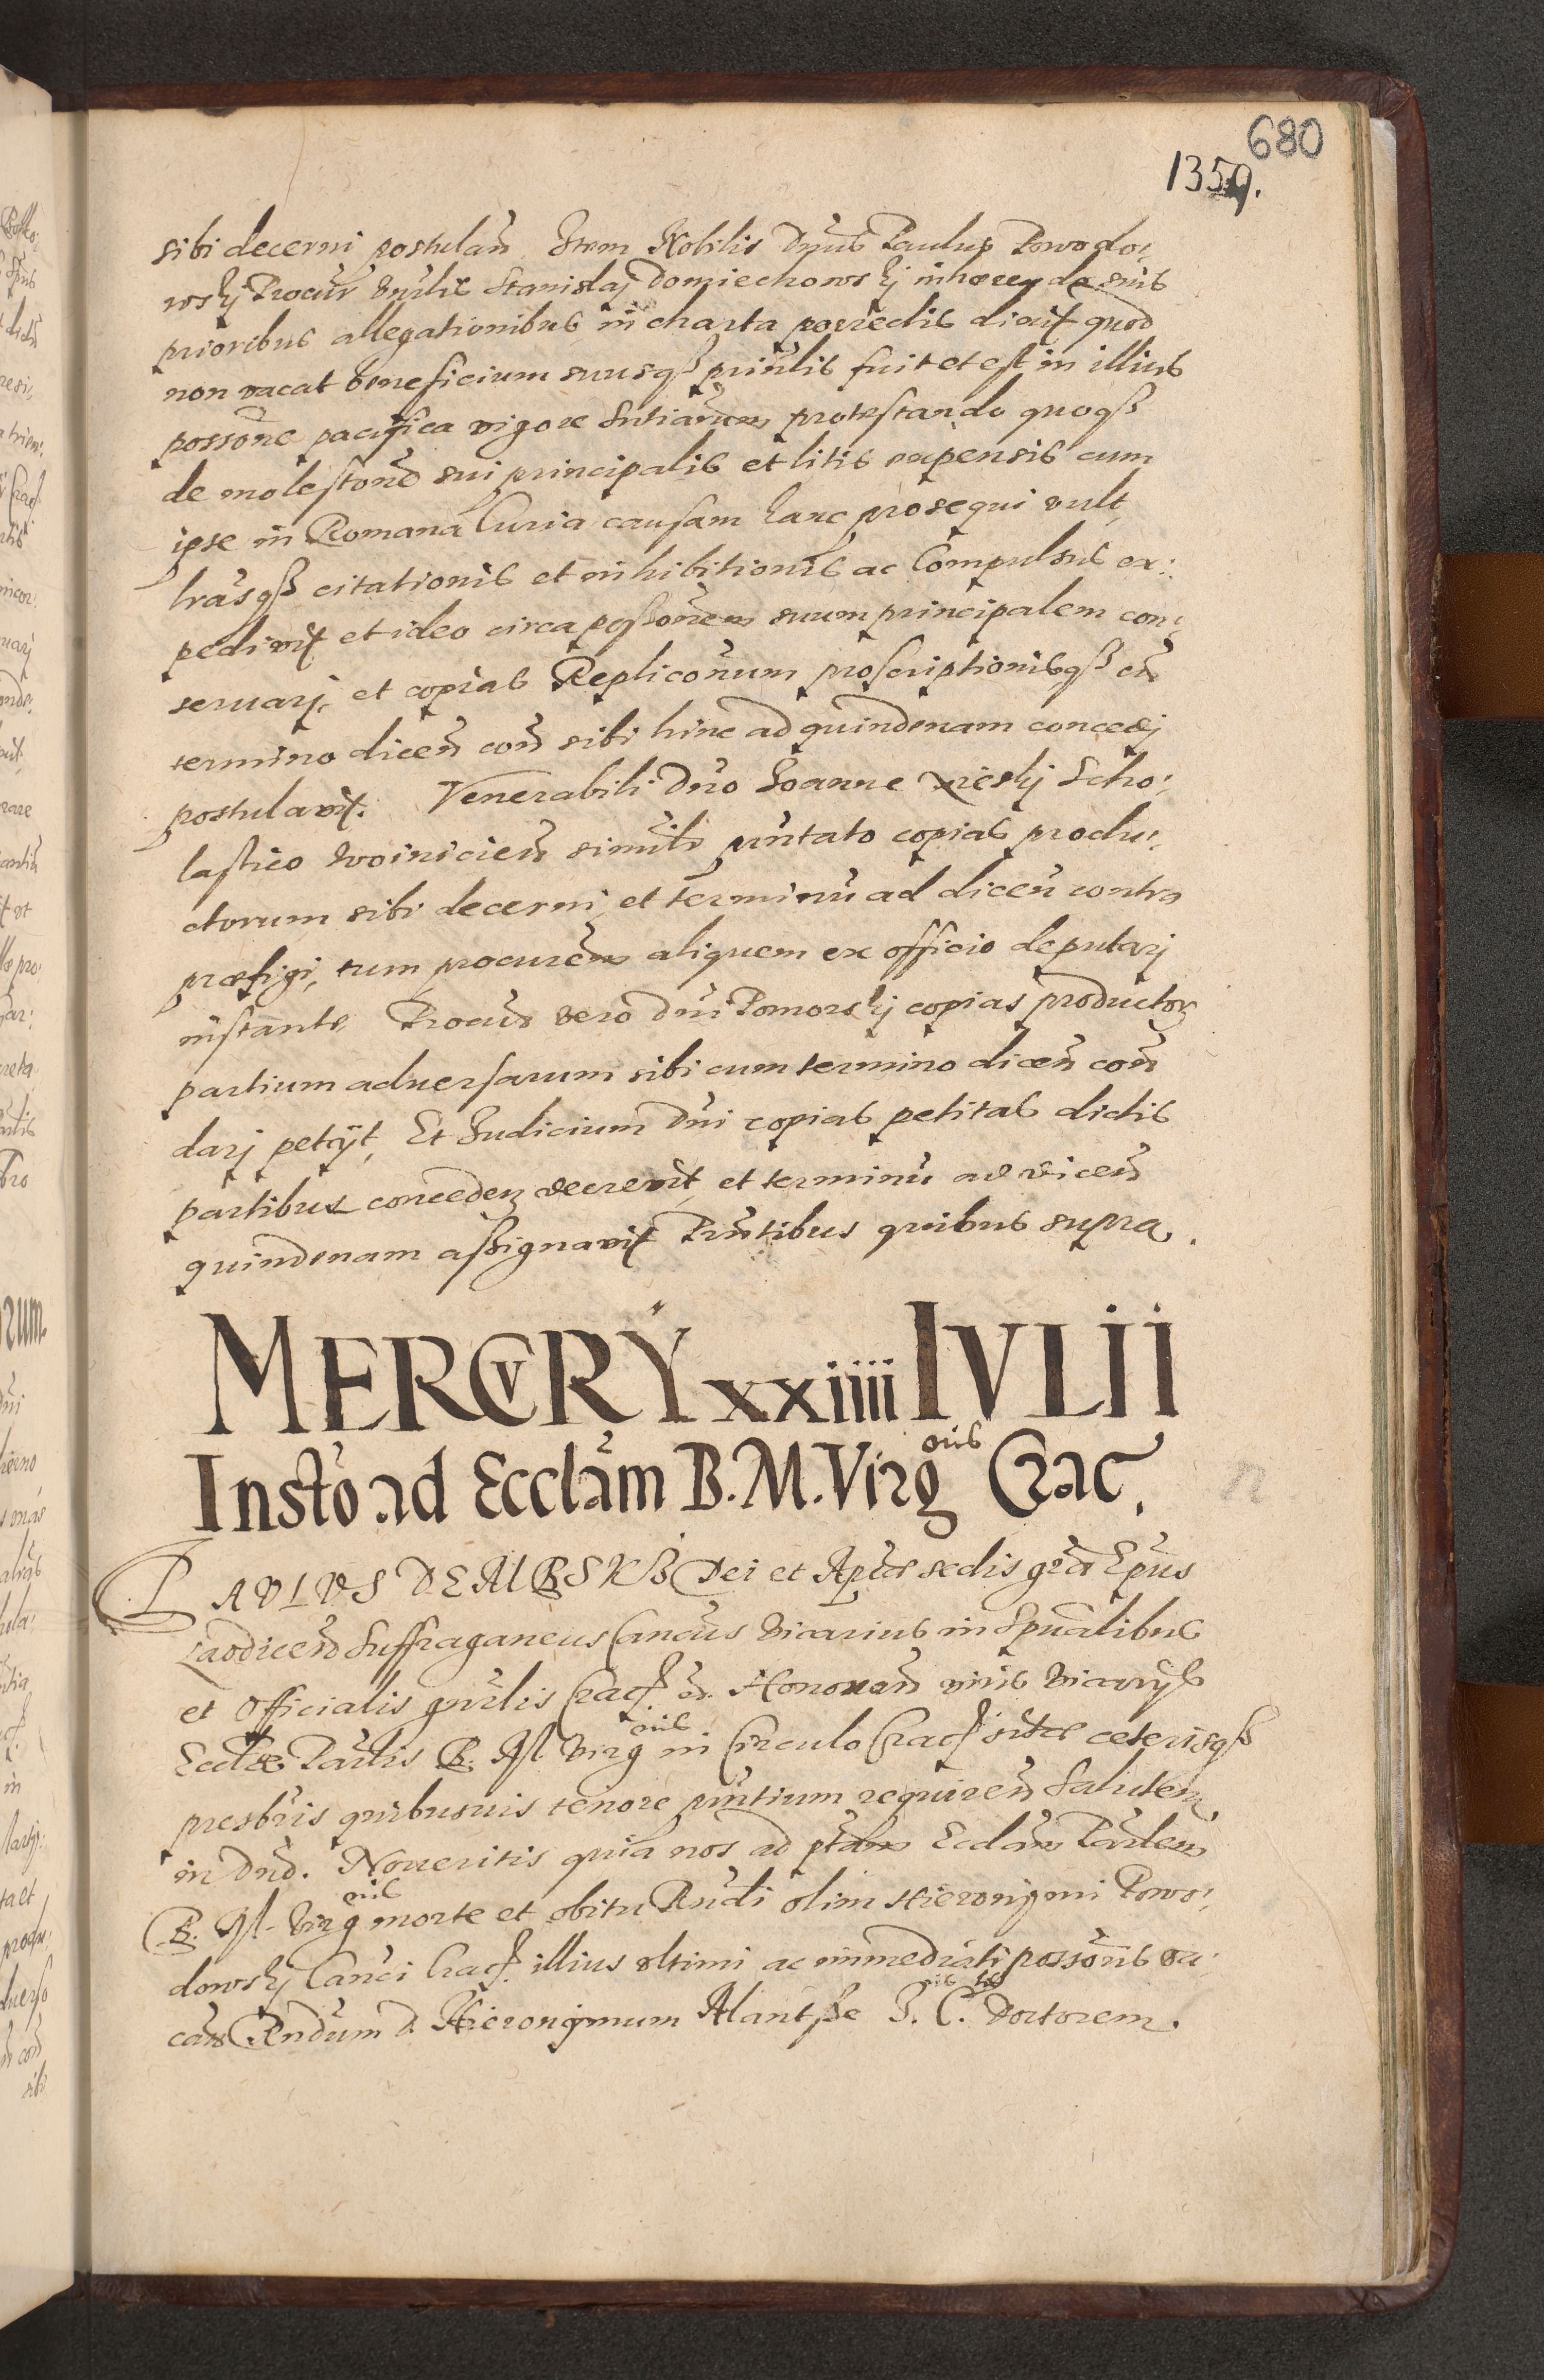 680
1359.
sibi decerni postulan̄. Item Nobilis Dn̄us Paulus Powodo:
wskj Procur̄ Vn̄rlis Stanislaj Domiechowskj inhærendo suis
prioribus allegationibus in charta porrectis dixit quod
non vacat beneficium suusq̃ prin̄lis fuit et est in illius
possōne pacifica vigore Sn̄tiarum protestando quoq̃
de molestōne sui principalis et litis expensis cum
ipse in Romana Curia causam hanc prosequi vult
lrāsq̃ citationis et inhibitionis ac Compulsus ex:
pedivit et ideo circa possōnem suum principalem con:
seruarj, et copias Replicōnum proscriptionisq̃ cū
termino dicen̄ con̄ sibi hinc ad quindenam concedj
postulavit. Venerabili Dn̄o Ioanne Scho:
lastico Woinicien̄ simili prn̄tato copias produ:
ctorum sibi decerni, et terminū ad dicen̄ contra
præfigi, tum procurem aliquem ex officio deputarj
instante. Procur̄ vero Dn̄i Pomorskj copias productor̄
partium aduersarum sibi cum termino dicen̄ con̄
darj petijt, Et Iudicium Dn̄i copias petitas dictis
partibus conceden̄ decrevit, et terminū ad dicen̄
quindenam assignavit Prn̄tibus quibus supra.
MERCVRY xxiiii IVLII
Instō ad Ecclām B. M. Virgīnis Crac.
PAVLVS DEMBSKI Dei et Aplcæ sedis grā Ep̄us
Laodicen̄ Suffraganeus Cancus Vicarius in Spūalibus
et Officialis gn̄rlis Crac̄. Honoran̄ viris Vicarijs
Ecclīæ Parlis B. M. Virginis in Circulo Crac̄ sitæ ceterisq̃
presbr̄is quibusuis tenore prn̄tium requiren̄ Salutem
in Dn̄o. Noueritis quia nos ad ptam Ecclām Parlem
B. M. Virginis morte et obitu Rn̄di olim Hieronymi Powo:
dowskj Canci Crac̄. illius vltimi ac immediati possōris va:
can̄ Rndum D. Hieronymum Mantsse I. C. Doctorem.